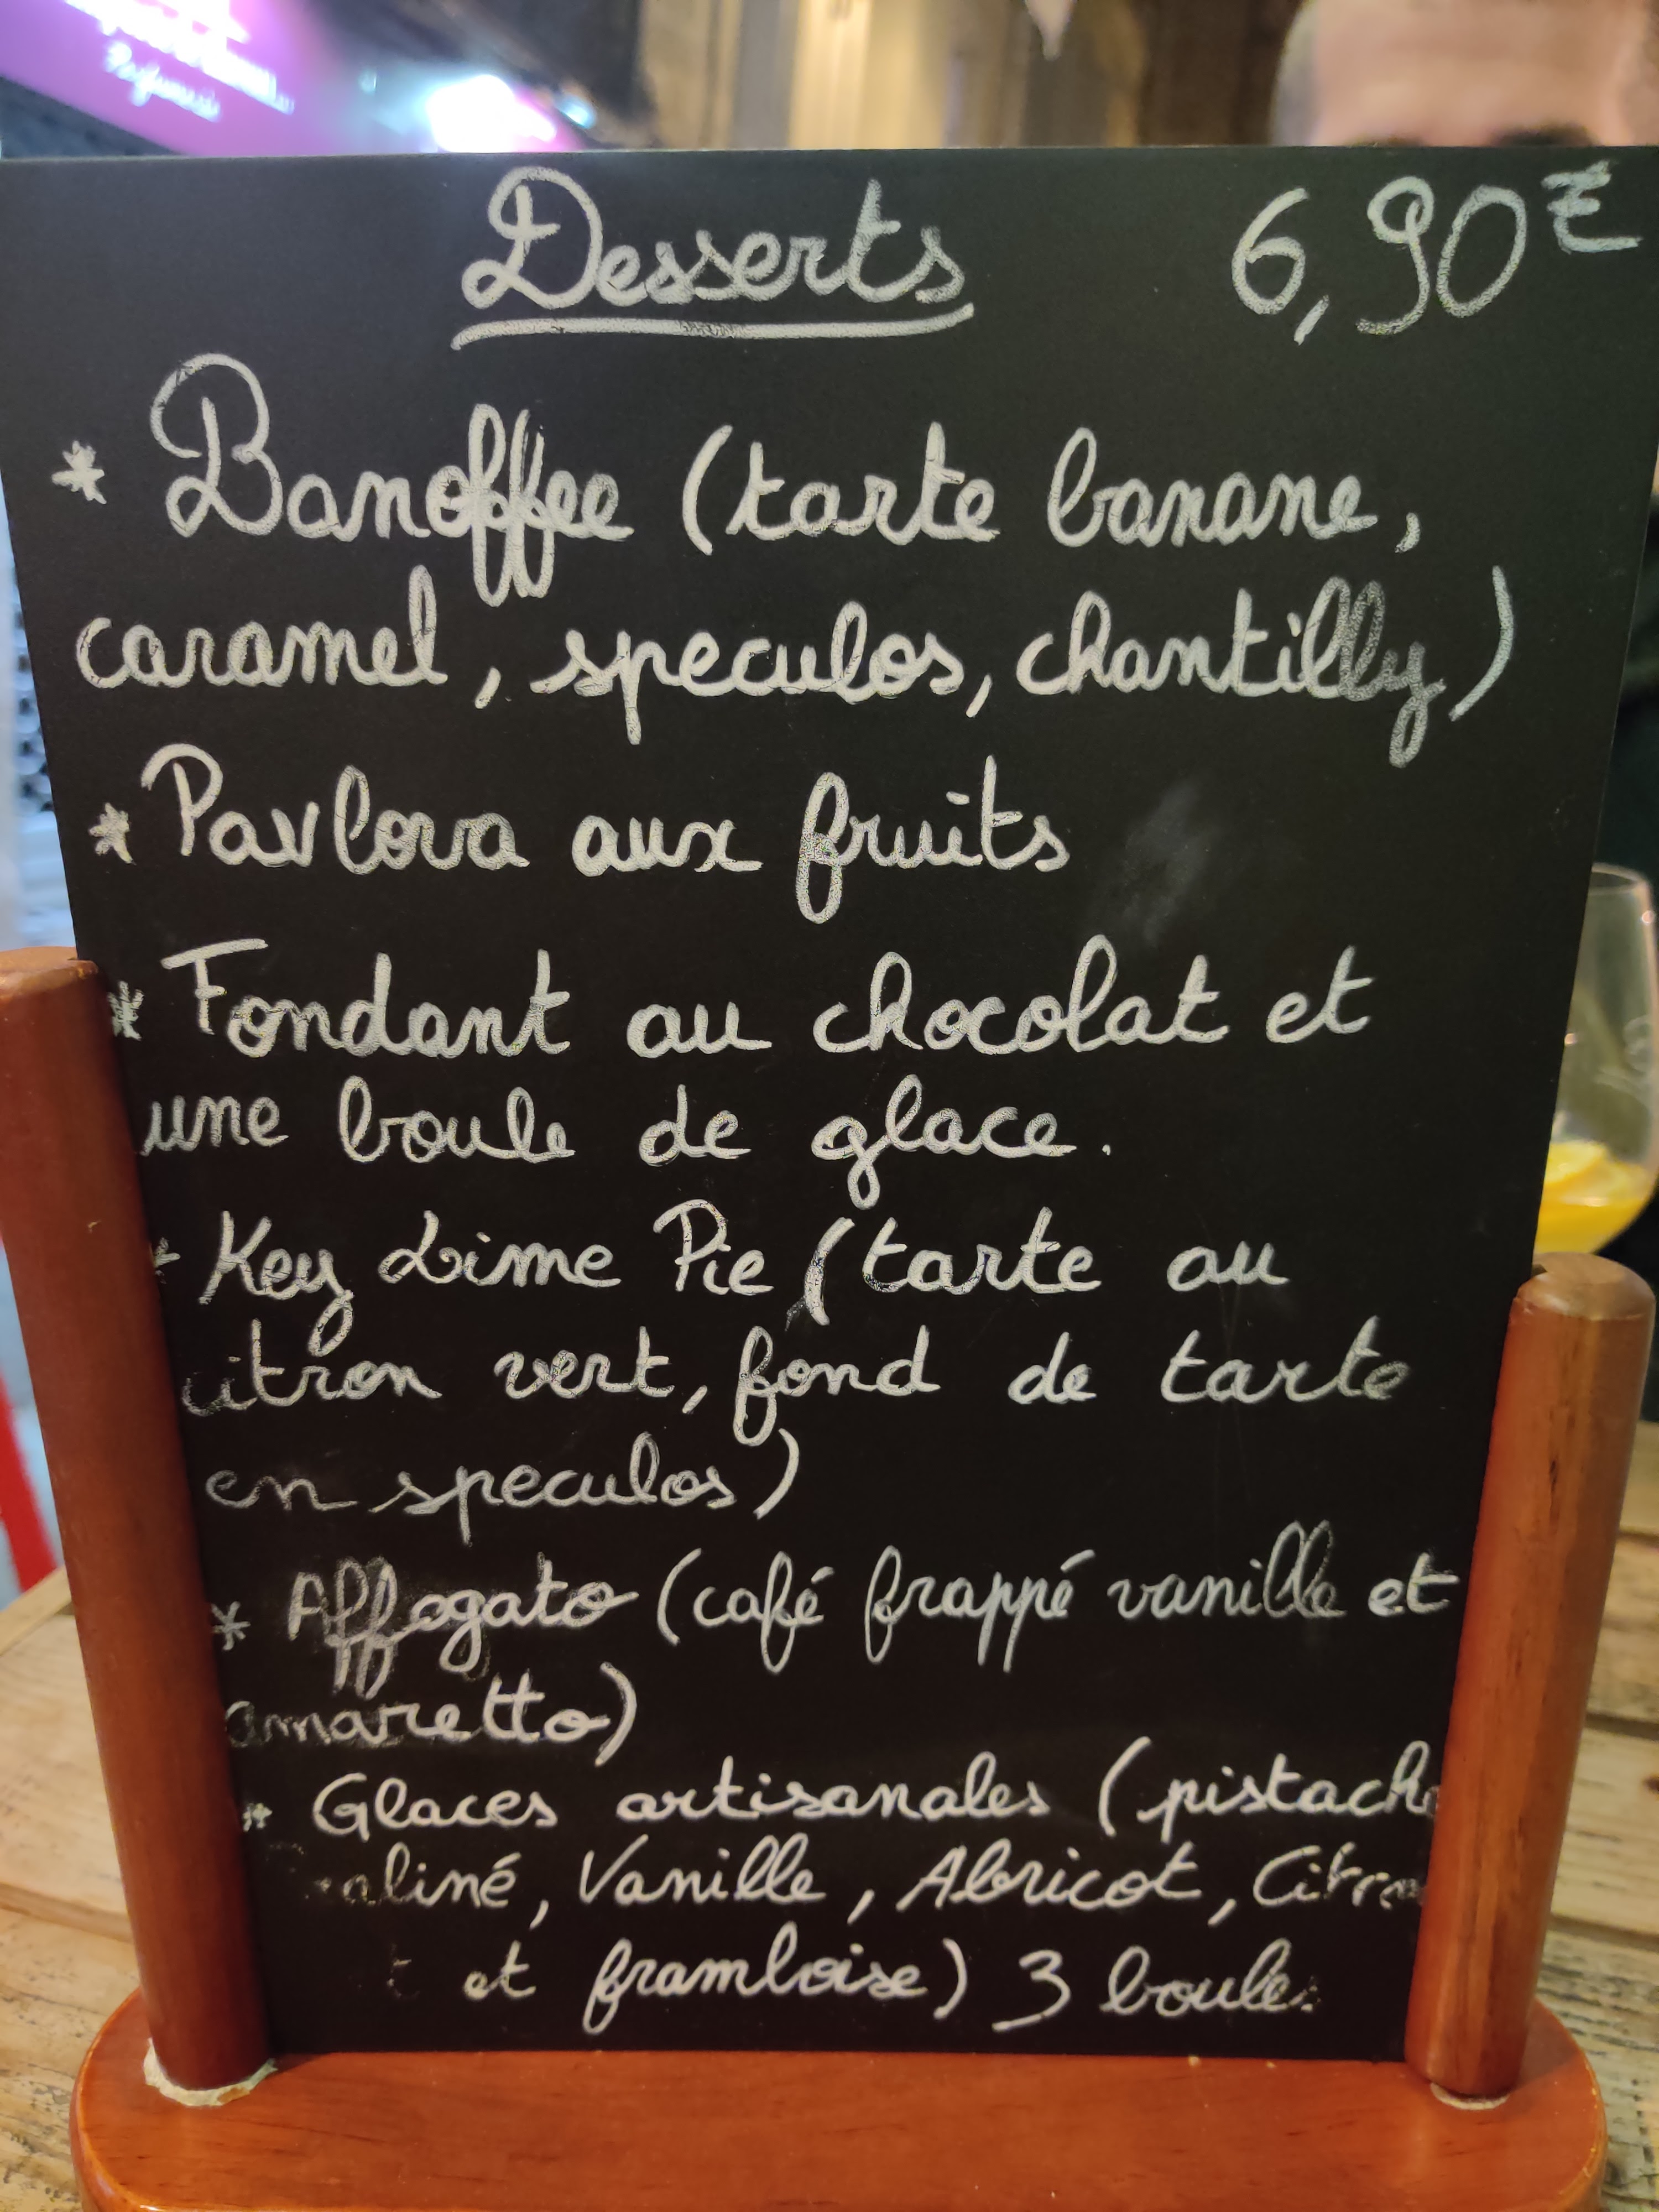 Desserts 6,90€
* Banoffee (tarte banane,
caramel, speculos, chantilly)
* Pavlova aux fruits
* Fondant au chocolat et
une boule de glace.
* Key Lime Pie (tarte au
citron vert, fond de tarte
en speculos)
* Affogato (café frappé vanille et
amaretto)
* Glaces artisanales (pistache
Vanille, Abricot,
et framboise) 3 boules